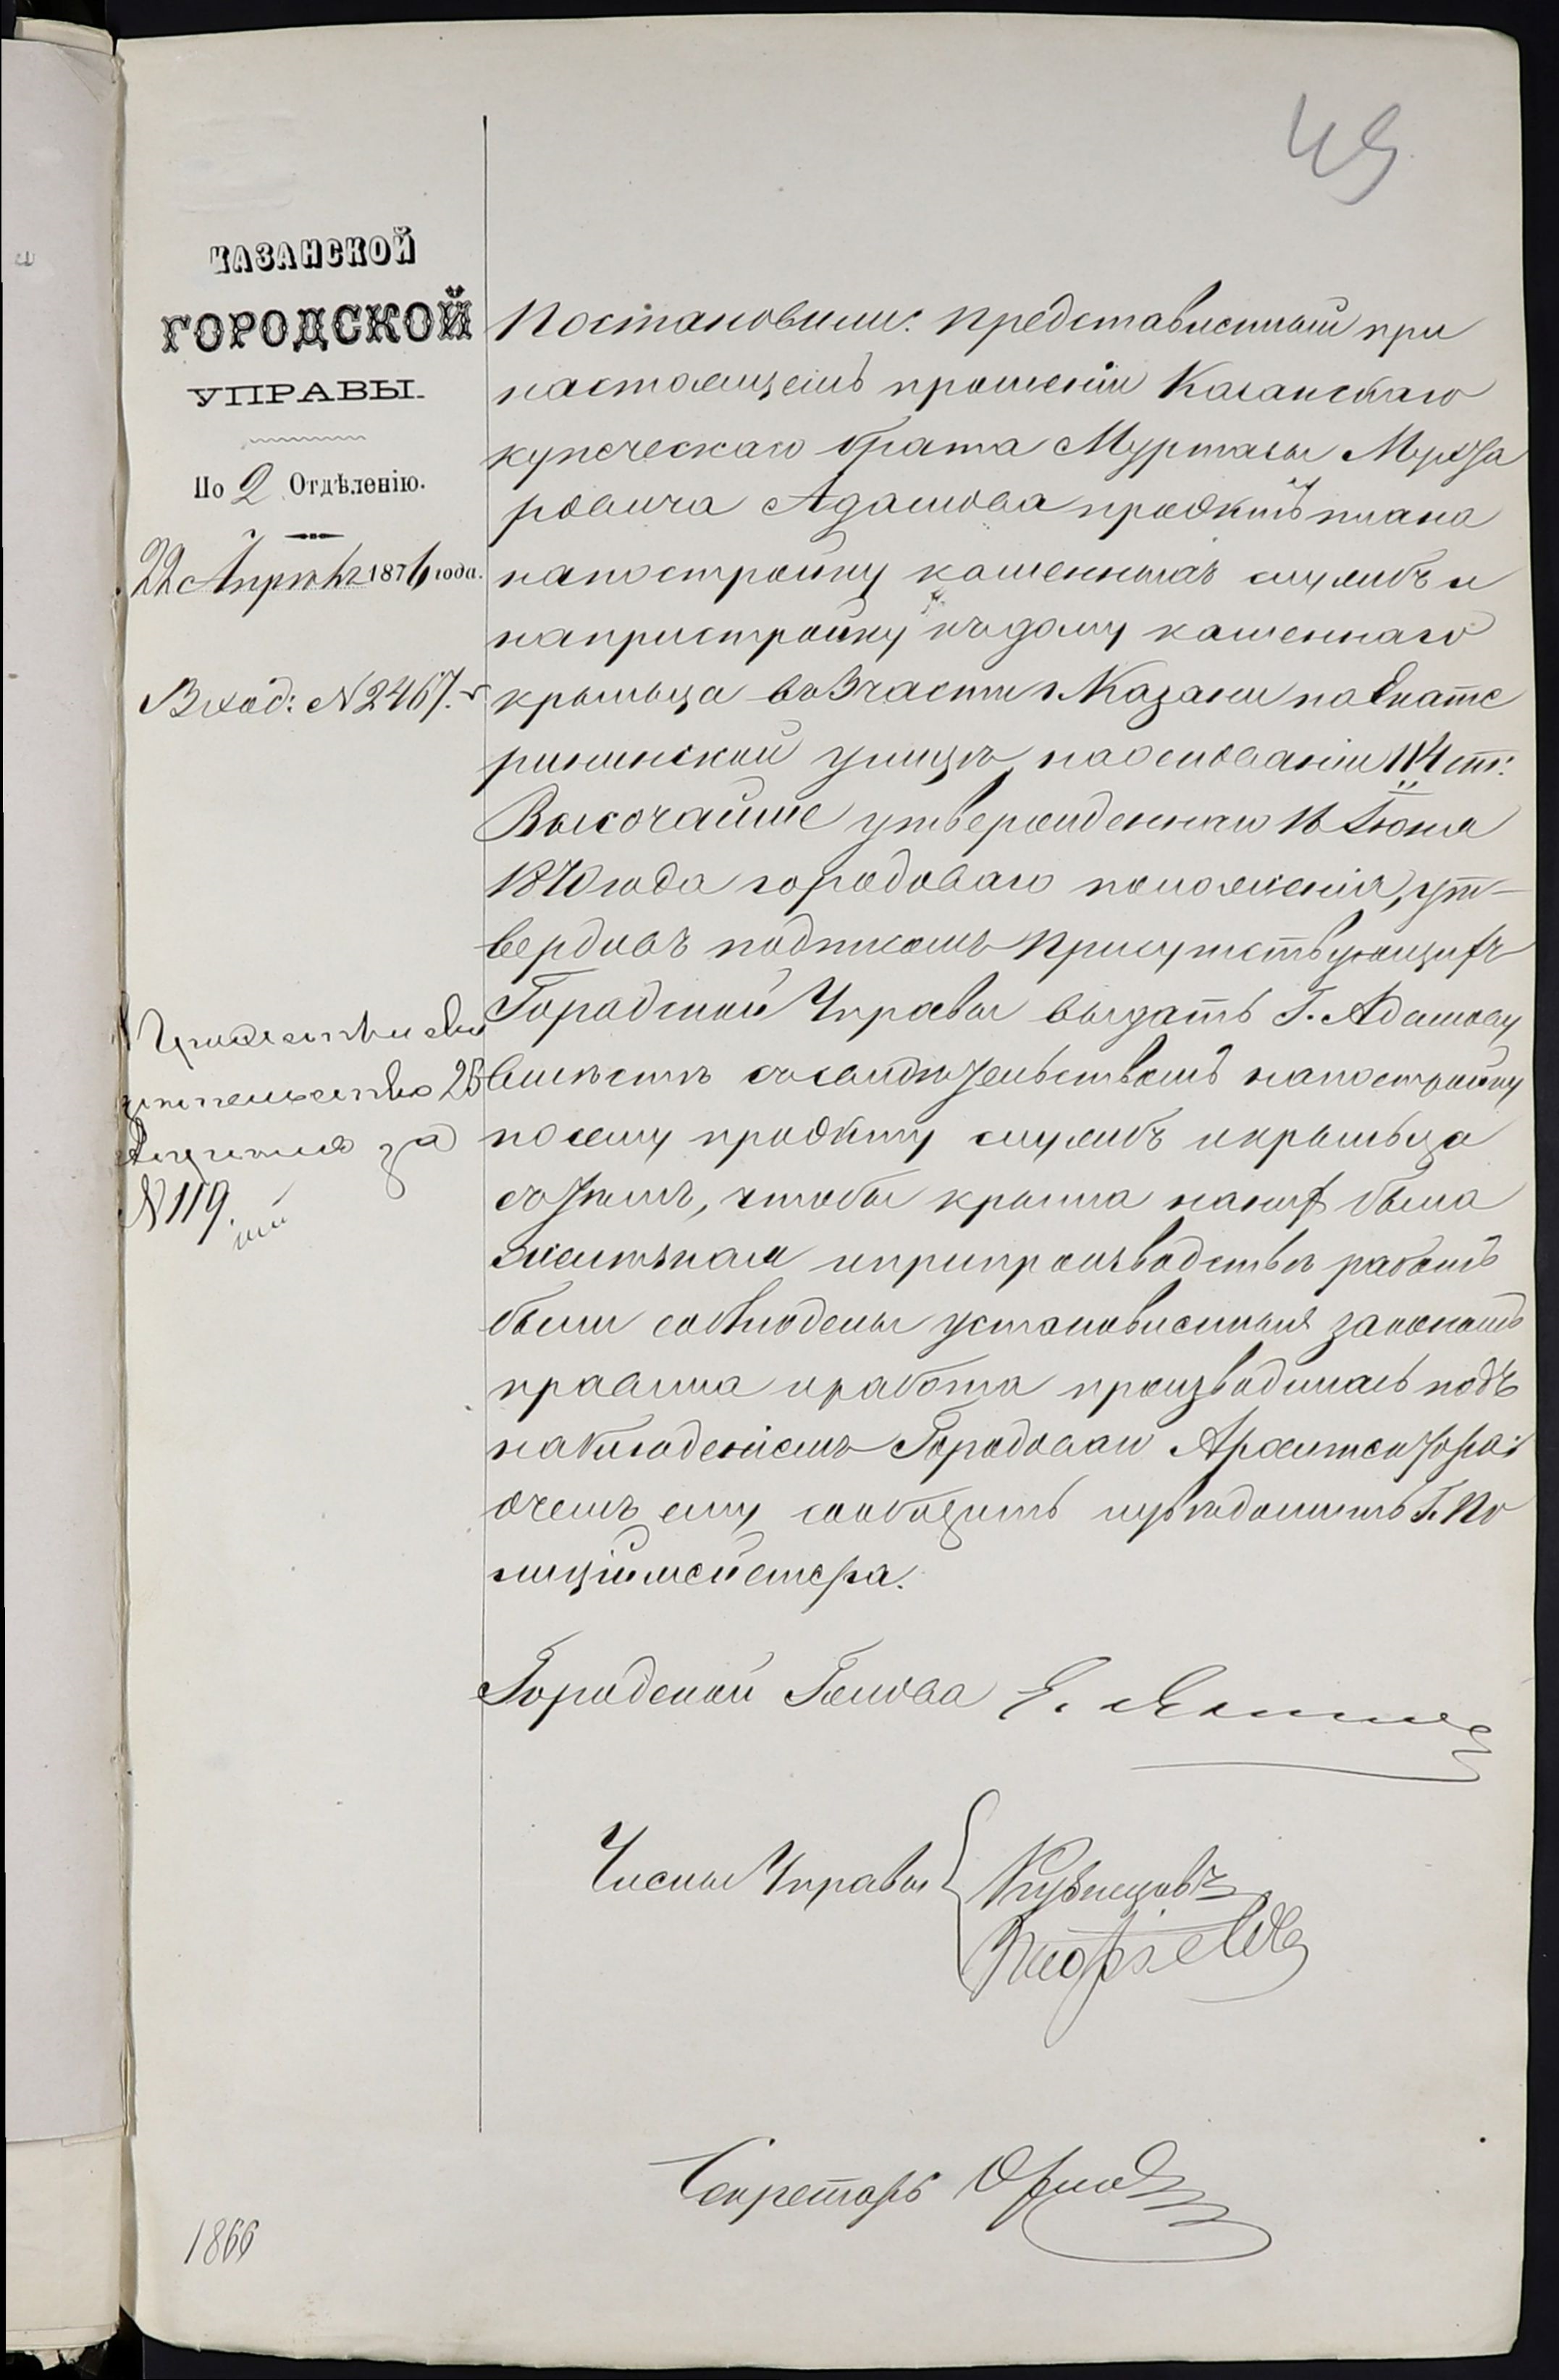 49
КАЗАНСКОЙ
ГОРОДСКОЙ
УПРАВЫ.
По 2 Отдѣленію.
22 Апрѣля 1876 года.
Вход: № 2467.
Постановили: представленный при
настоящемъ прошеніи Казанскаго
купеческаго брата Муртазы
Адамова проэктъ плана
на постройку каменныхъ службъ и
на пристройку къ дому каменнаго
крыльца въ 3 части г. Казани по Екате
рининской улицѣ, на основаніи 114 ст:
Высочайше утвержденнаго 16 Іюня
1870 года городоваго положенія, ут-
вердивъ подписомъ Присутствующихъ
Городской Управы выдать Г. Адамову
вмѣстѣ съ свидѣтельствомъ на постройку
по сему проэкту службъ и крыльца
съ тѣмъ, чтобы крыша на них была
желѣзная и при производствѣ работъ
были соблюдены установленныя закономъ
правила и работа производилась подъ
наблюденіемъ Городоваго Архитектора:
о чемъ ему сообщить и увѣдомить Г. По
лиціймейстера.
25
за
№ 119.
Городской Голова Е.
Члены Управы
Кузнецовъ
Секретарь
1866